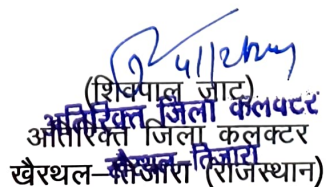 4/12/2024
(शिवपाल जाट)
अतिरिक्त जिला कलक्टर
अतिरिक्त जिला कलक्टर
खैरथल-तिजारा
खैरथल–तिजारा (राजस्थान)